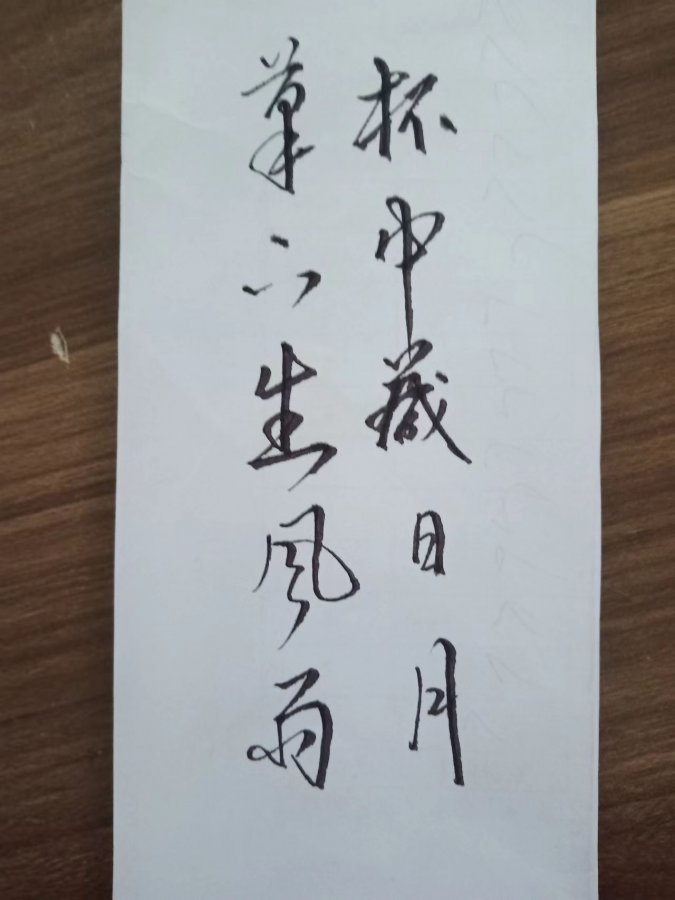 杯中藏日月
筆下生風雨